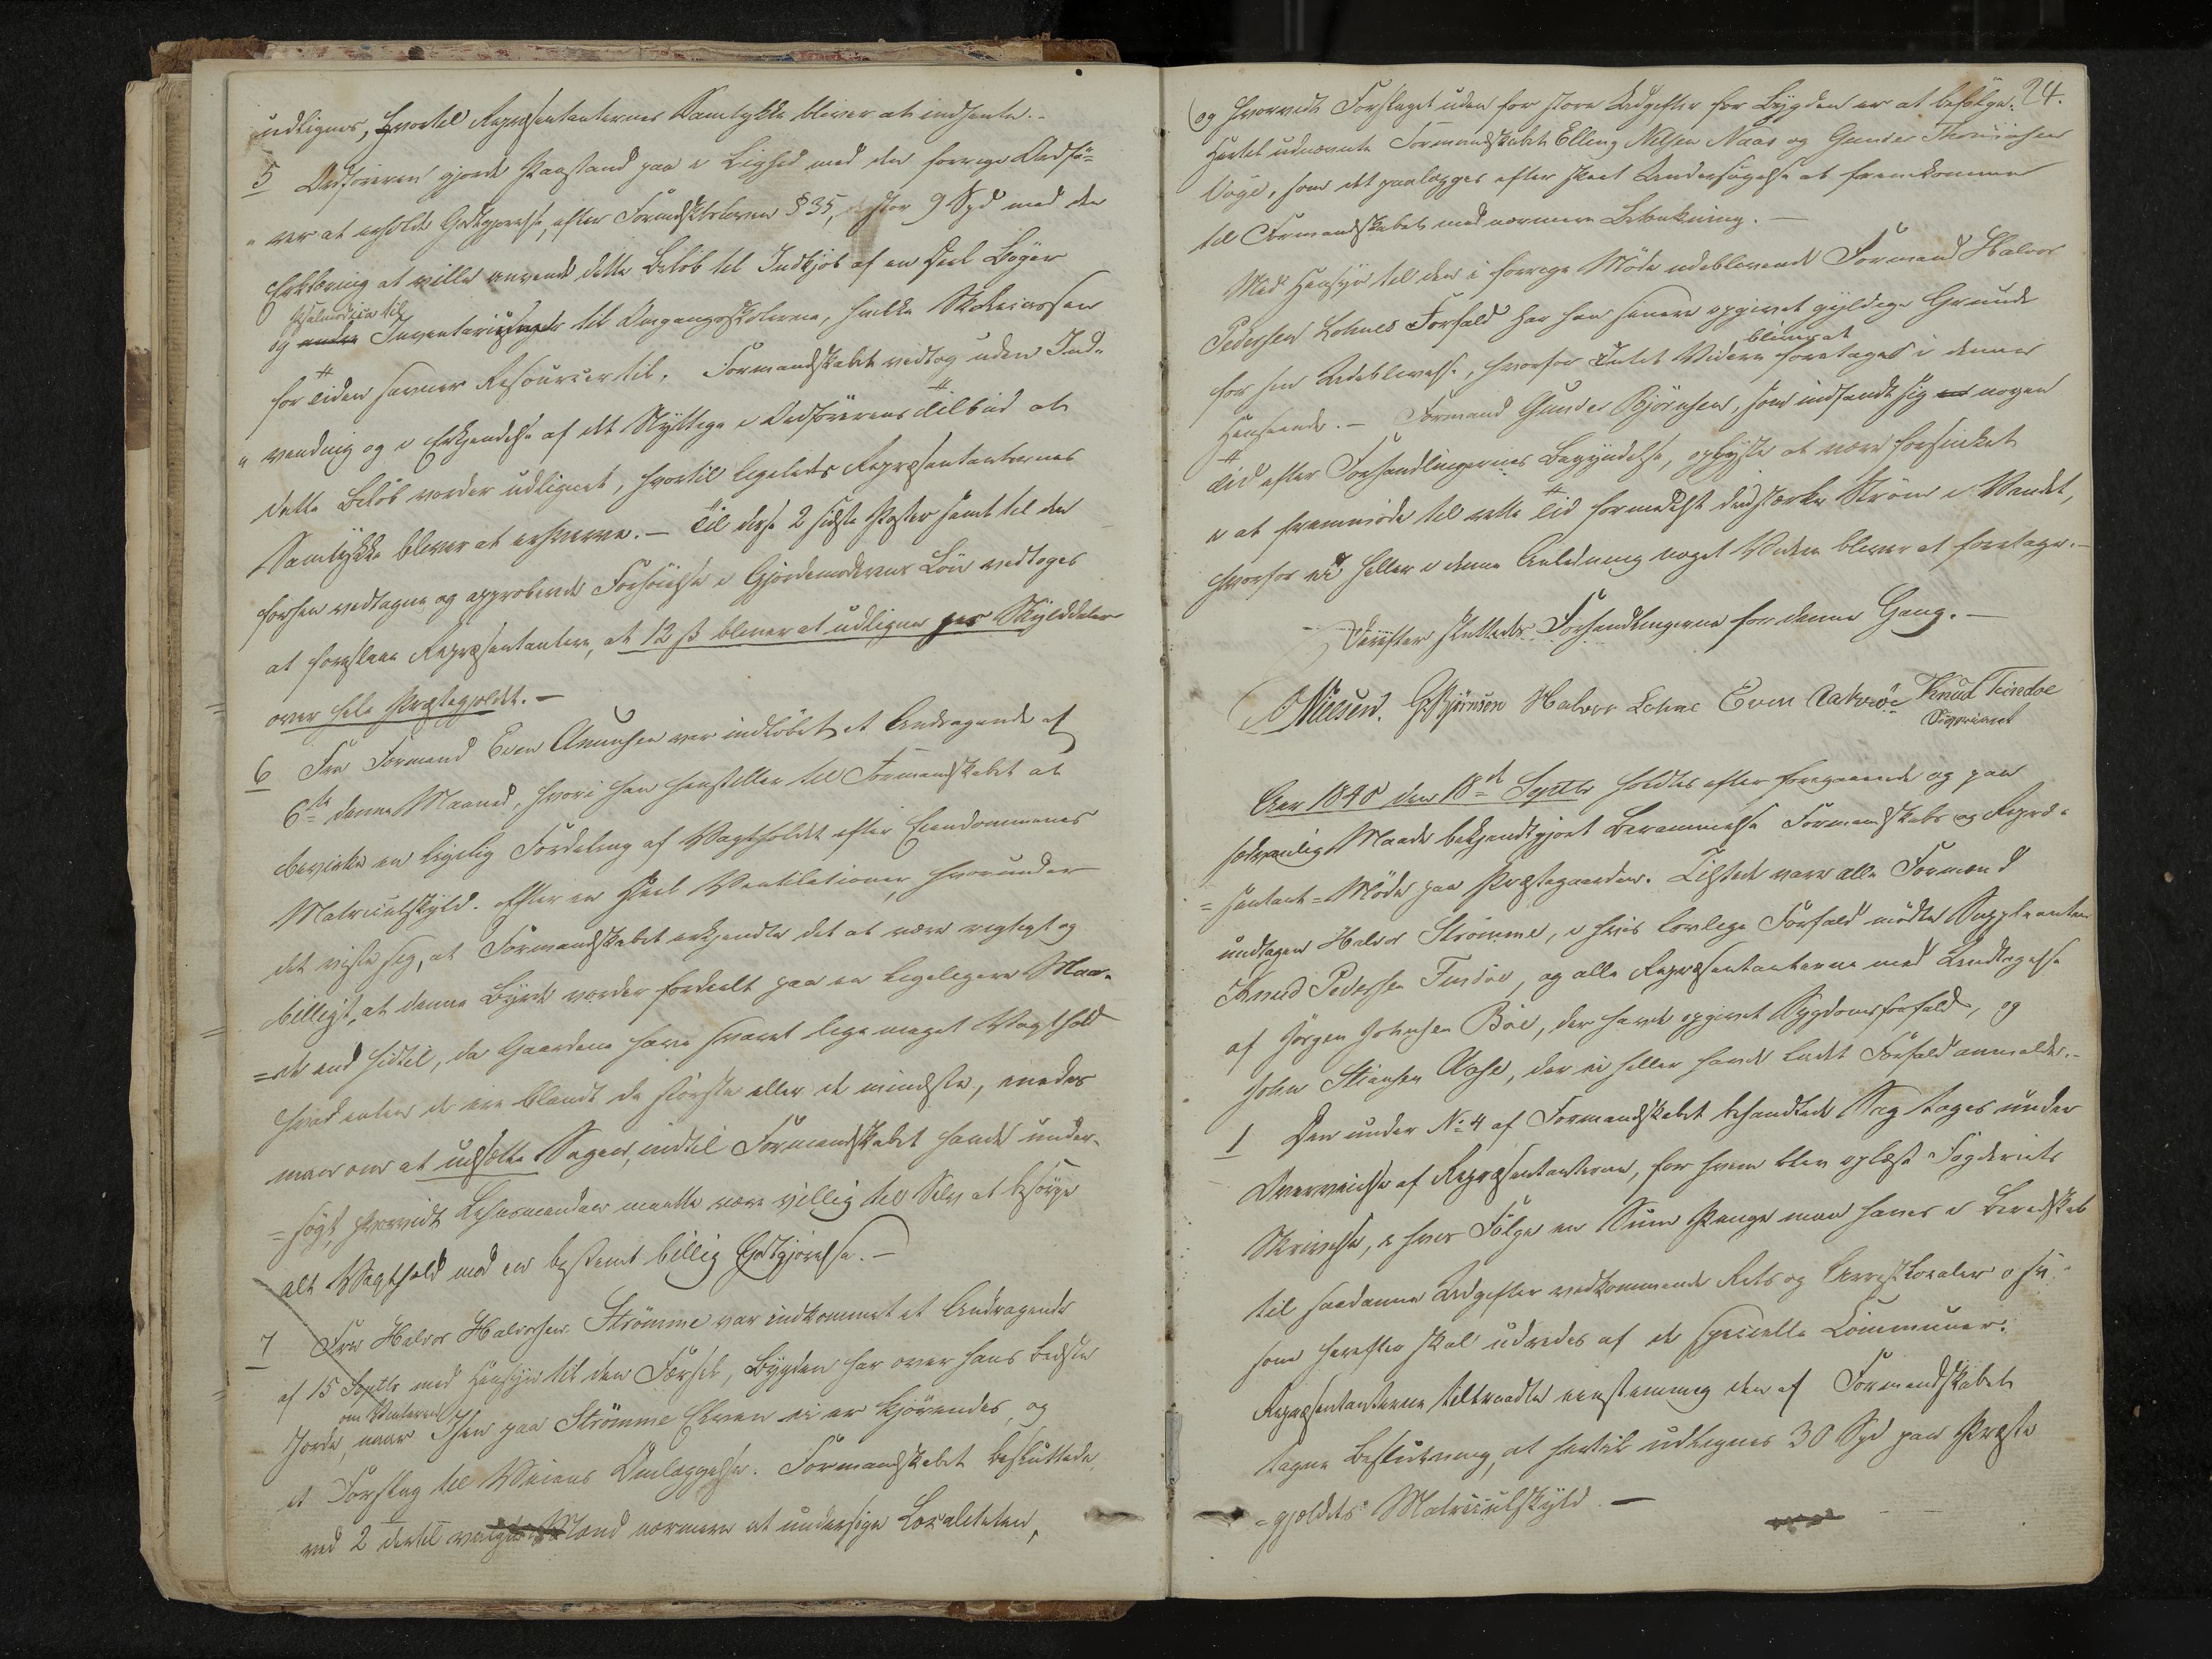 udlignes, hvortil Repræsentanternes Samtykke bliver at indhente.-
5 Ordføreren gjorde Paastand paa i Lighed med den forrige Ordfö-
"rer at erholde Godtgjørelse, efter Formdskbsloven § 35, stor 9 Spd med den
Erklæring at ville anvende dette Beløb til Indkjøb af en Deel Bøger
Psalmodica til
og andre Inventarier til Omgangsskolerne, hvilke Skolecassen
for Tiden savner Resourcer til. Formandskabet vedtog uden Ind-
"vending og i Erkjendelse af det Nyttige i Ordførerens Tilbud at
dette Beløb vorder udlignet, hvortil ligeledes Repræsentanternes
Samtykke bliver at erhverve.- Til disse 2 sidste Poster samt til den
forhen vedtagne og approberede Forhøielse i Gjordemoderens Løn vedtoges
at foreslaae Repræsentanterne, at 12 ß bliver at udligne per Skylddaler
over hele Præstegjeldet.-
6 Fra Formand Even Amunsen var indløbet et Andragende af
6te denne Maaned, hvori han henstiller til Formandskabet at
bevirke en ligelig Fordeling af Vagtholdet efter Eiendommenes
Matriculskyld. Efter en Deel Ventilationer, hvorunder
det viste sig, at Formandskabet erkjendte det at være rigtigt og
billigt, at denne Byrde vorder fordeelt paa en ligeligere Maa-
=de end hidtil, da Gaardene have svaret lige meget Vagthold
hvad enten de ere blandt de største eller de mindste, enedes
man om at udsætte Sagen, indtil Formandskabet havde under-
=søgt, hvorvidt Lehnsmanden maatte være villig til Selv at besørge
alt Vagthold mod en bestemt billig Godtgjørelse.-
7 Fra Halvor Halvorsen Strömme var indkommet et Andragende
af 15 Septbr med Hensyn til den Færsel, Bygden har over hans bedste
om Vinteren
Jorde, naar Isen paa Strömme Elven ei er kjørendes, og
et Forslag til Veiens Omlæggelse. Formandskabet besluttede,
ved 2 dertil valgte Mænd nærmere at undersøge Localiteten,
24.
og hvorvidt Forslaget uden for store Udgifter for Bygden er at befølge.
Hertil udnævnte Formandskabet Elleng Nilsen Naas og Gunder
Voge, som det paalægges efter skeet Undersøgelse at fremkomme
til Formandskabet med nærmere Betænkning.-
Med Hensyn til den i forrige Møde udeblevende Formand Halvor
Pedersen Lohnes Forfald har han senere opgivet gyldige Grunde
bliver at
for sin Udeblivelse, hvorfor Intet Videre foretages i denne
Henseende.- Formand Gunder Bjørnsen, som indfandt sig nogen
Tid efter Forhandlingernes Begyndelse, oplyste at være forsinket
i at fremmøde til rette Tid formedelst den stærke Strøm i Vandet,
hvorfor ei heller i denne Anledning noget Videre bliver at foretage.-
Derefter sluttedes Forhandlingerne for denne Gang.-
Nielsen. G. Bjørnsen Halvor Lohne Even Knud Tindöe
Aar 1840 den 18de Septbr holdtes efter foregaaende og paa
sædvanlig Maade bekjendtgjort Berammelse Formandskabs og Repræ-
=sentant-Møde paa Præstegaarden. Tilstede vare alle Formænd
undtagen Halvor Strömme, i hvis lovlige Forfald mødte Suppleanten
Knud Pedersen Tindöe, og alle Repræsentanterne med Undtagelse
af Jörgen Johnsen Böe, der havde opgivet Sygdomsforfald, og
John Stiansen Aase, der ei heller havde ladet Forfald anmelde.-
1 Den under No 4 af Formandskabet behandlede Sag toges under
Overveielse af Repræsentanterne, for hvem blev oplæst Fogderiets
Skrivelse, i hvis Følge en Sum Penge maa haves i Beredskab
til saadanne Udgifter vedkommende Rets og Arrest Localer o s v
som herefter skal udredes af de specielle Communer.
Repræsentanterne tiltraadte eenstemmig den af Formandskabet
tagne Beslutning, at hertil udlignes 30 Spd paa Præste
=gjeldets Matriculskyld.-